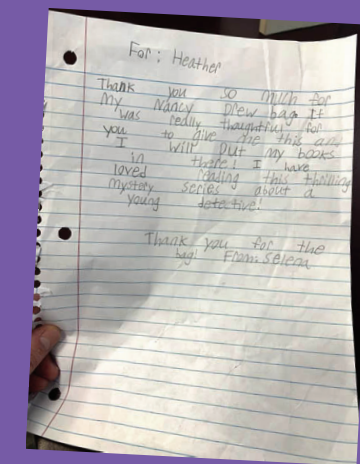 For: Heather
Thank you so much for
My Nancy Drew bag. It
was really thoughtful for
you to give me this and
I will put my books
in there! I have
loved reading this thrilling
mystery series about a
young detective!
Thank you for the
bag! From Selena